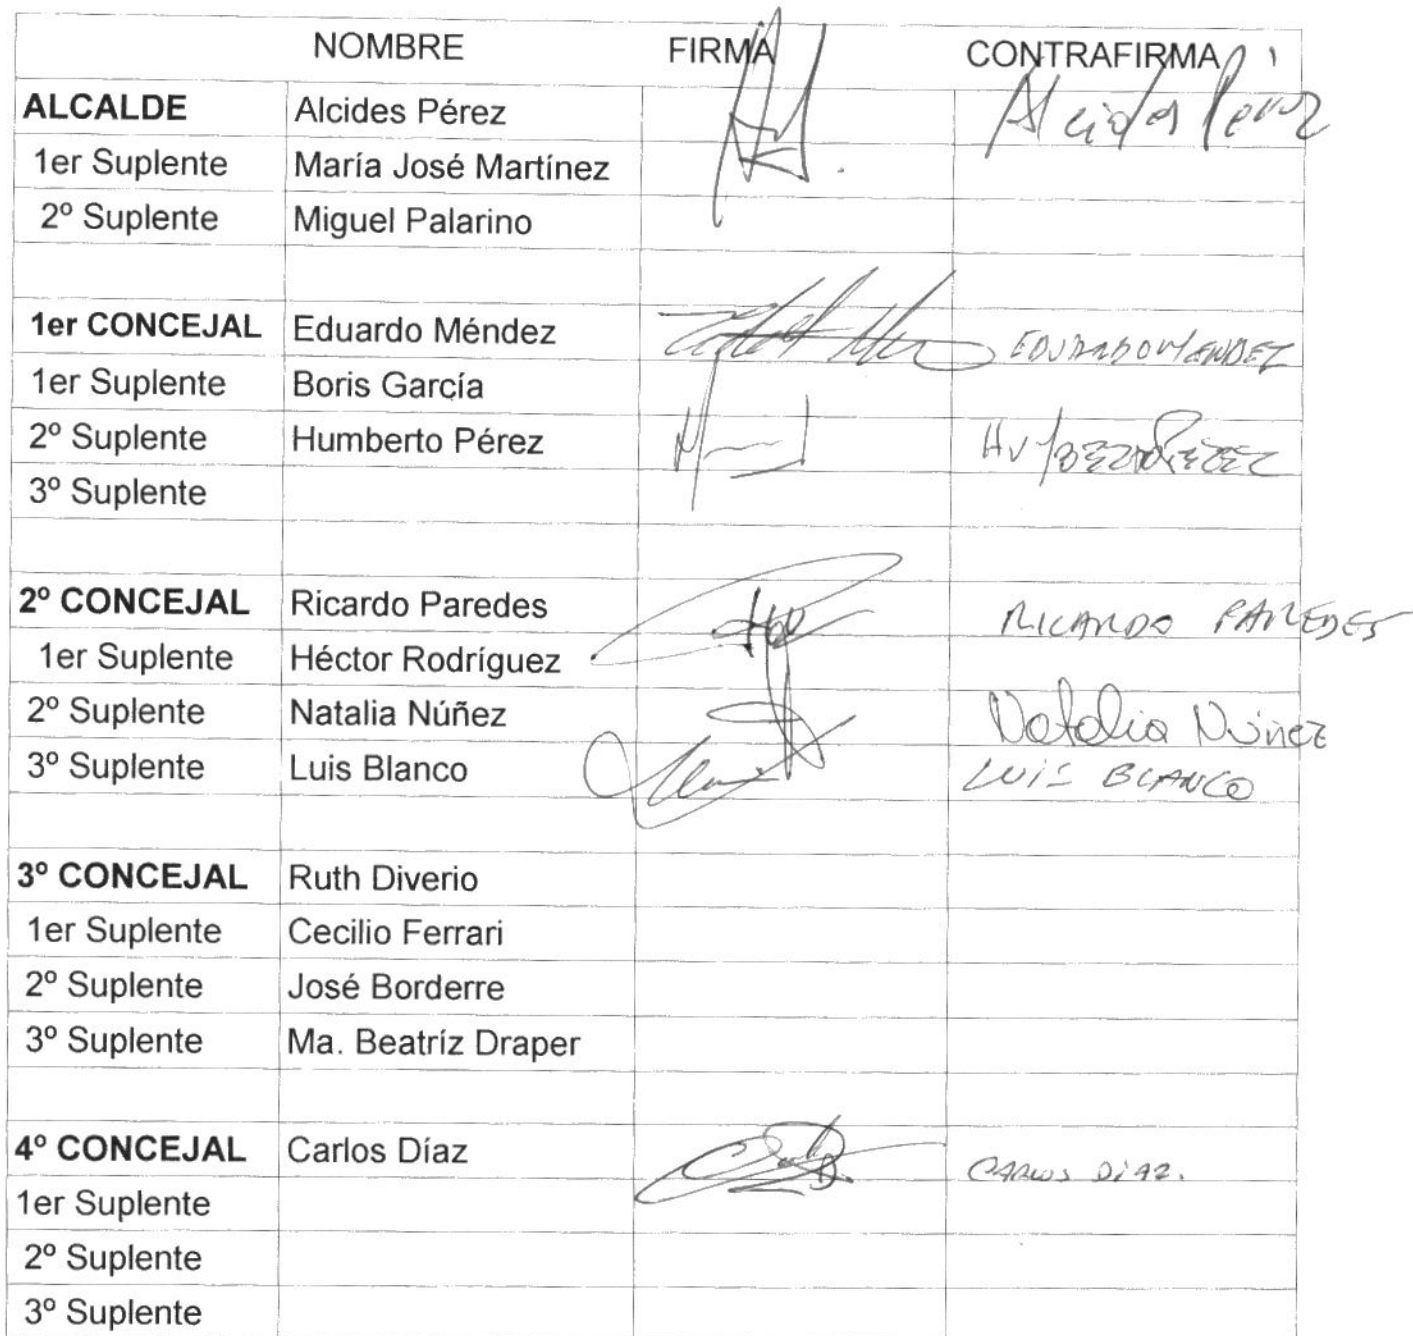 NOMBRE FIRMA CONTRAFIRMA
ALCALDE Alcides Pérez Alcides Pérez
1er Suplente María José Martínez
2º Suplente Miguel Palarino
1er CONCEJAL Eduardo Méndez EDUARDO MENDEZ
1er Suplente Boris García
2º Suplente Humberto Pérez HUMBERTO PEREZ
3º Suplente
2º CONCEJAL Ricardo Paredes RICARDO PAREDES
1er Suplente Héctor Rodríguez
2º Suplente Natalia Núñez Natalia Núñez
3º Suplente Luis Blanco LUIS BLANCO
3º CONCEJAL Ruth Diverio
1er Suplente Cecilio Ferrari
2º Suplente José Borderre
3º Suplente Ma. Beatríz Draper
4º CONCEJAL Carlos Díaz CARLOS DíAZ.
1er Suplente
2º Suplente
3º Suplente